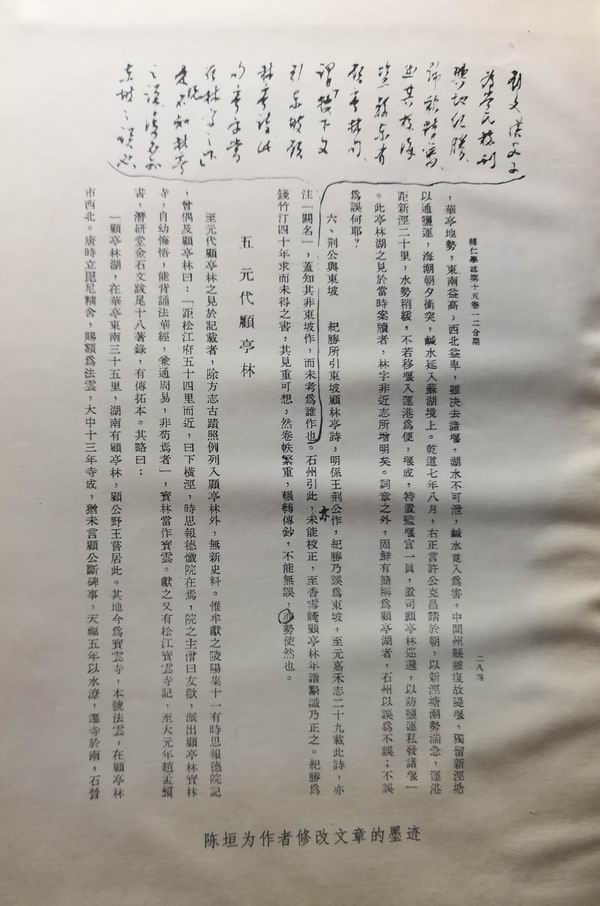 劉文淇父子
為岑氏校刊
輿地紀勝
號稱精
謂接下文
引東坡顧
林亭詩此
東坡之誤也
輔仁學誌第十五卷一二合期
二八四
,華亭地勢,東南益高,西北益卑,雖决去諸堰,湖水不可泄,鹹水竟入為害,中間州縣雖復故隄堰,獨留新涇塘
以通鹽運,海潮朝夕衝突,鹹水延入蘇湖境上。乾道七年八月,右正言許公克昌請於朝,以新涇塘潮勢湍急,運港
距新涇二十里,水勢稍緩,不若移堰入運港為便,堰成,特置監堰官一員,並司顧亭林巡邏,以防鹽運私發諸堰」
。此亭林湖之見於當時案牘者,林字非近志所增明矣。詞章之外,固鮮有簡稱為顧亭湖者,石州以誤為不誤;不誤
為誤何耶?
六、荆公與東坡 紀勝所引東坡顧林亭詩,明係王荆公作,紀勝乃誤為東坡,至元嘉禾志二十九載此詩,亦
注「闕名」,蓋知其非東坡作,而未考為誰作也。石州引此,亦未能校正,至香雪崦顧亭林年譜斠識乃正之。紀勝為
錢竹汀四十年求而未得之書,其見重可想,然卷帙繁重,輾轉傳鈔,不能無誤,亦勢使然也。
五 元代顧亭林
至元代顧亭林之見於記載者,除方志古蹟照例列入顧亭林外,無新史料。惟牟獻之陵陽集十一有時思報德院記
,曾偶及顧亭林曰:「距松江府五十四里而近,曰下橫涇,時思報德懺院在焉,院之主僧曰友敬,派出顧亭林寶林
寺,自幼悔悟,能背誦法華經,兼通周易,非苟焉者」,寶林當作寶雲。獻之又有松江寶雲寺記,至大元年趙孟頫
書,潛研堂金石文跋尾十八著錄,有傳拓本。其略曰:
「顧亭林湖,在華亭東南三十五里,湖南有顧亭林,顧公野王嘗居此。其地今為寶雲寺,本號法雲,在顧亭林
市西北。唐時立毘尼精舍,賜額為法雲,大中十三年寺成,猶未言顧公斷碑事,天福五年以水潦,遷寺於南,石晉
陈垣为作者修改文章的墨迹